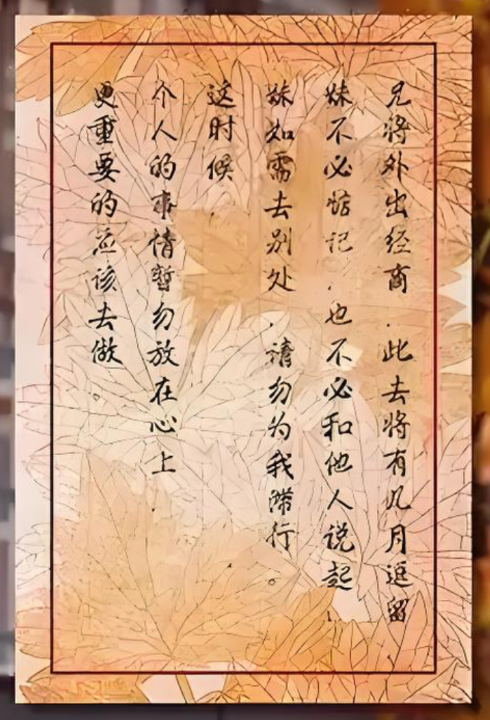 兄将外出经商，此去将有几月逗留
妹不必惦记，也不必和他人说起
妹如需去别处，请勿为我滞行。
这时候
个人的事情暂勿放在心上
更重要的应该去做